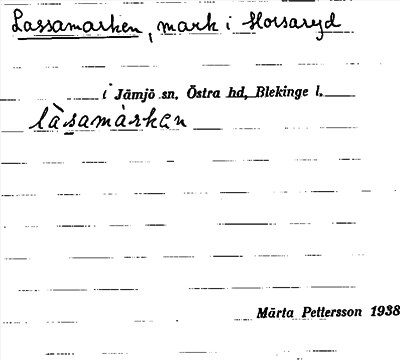 Lassamarken, mark i Horsaryd
i Jämjö sn, Östra hd, Blekinge l.
làsamàrkɐn
Märta Pettersson 1938